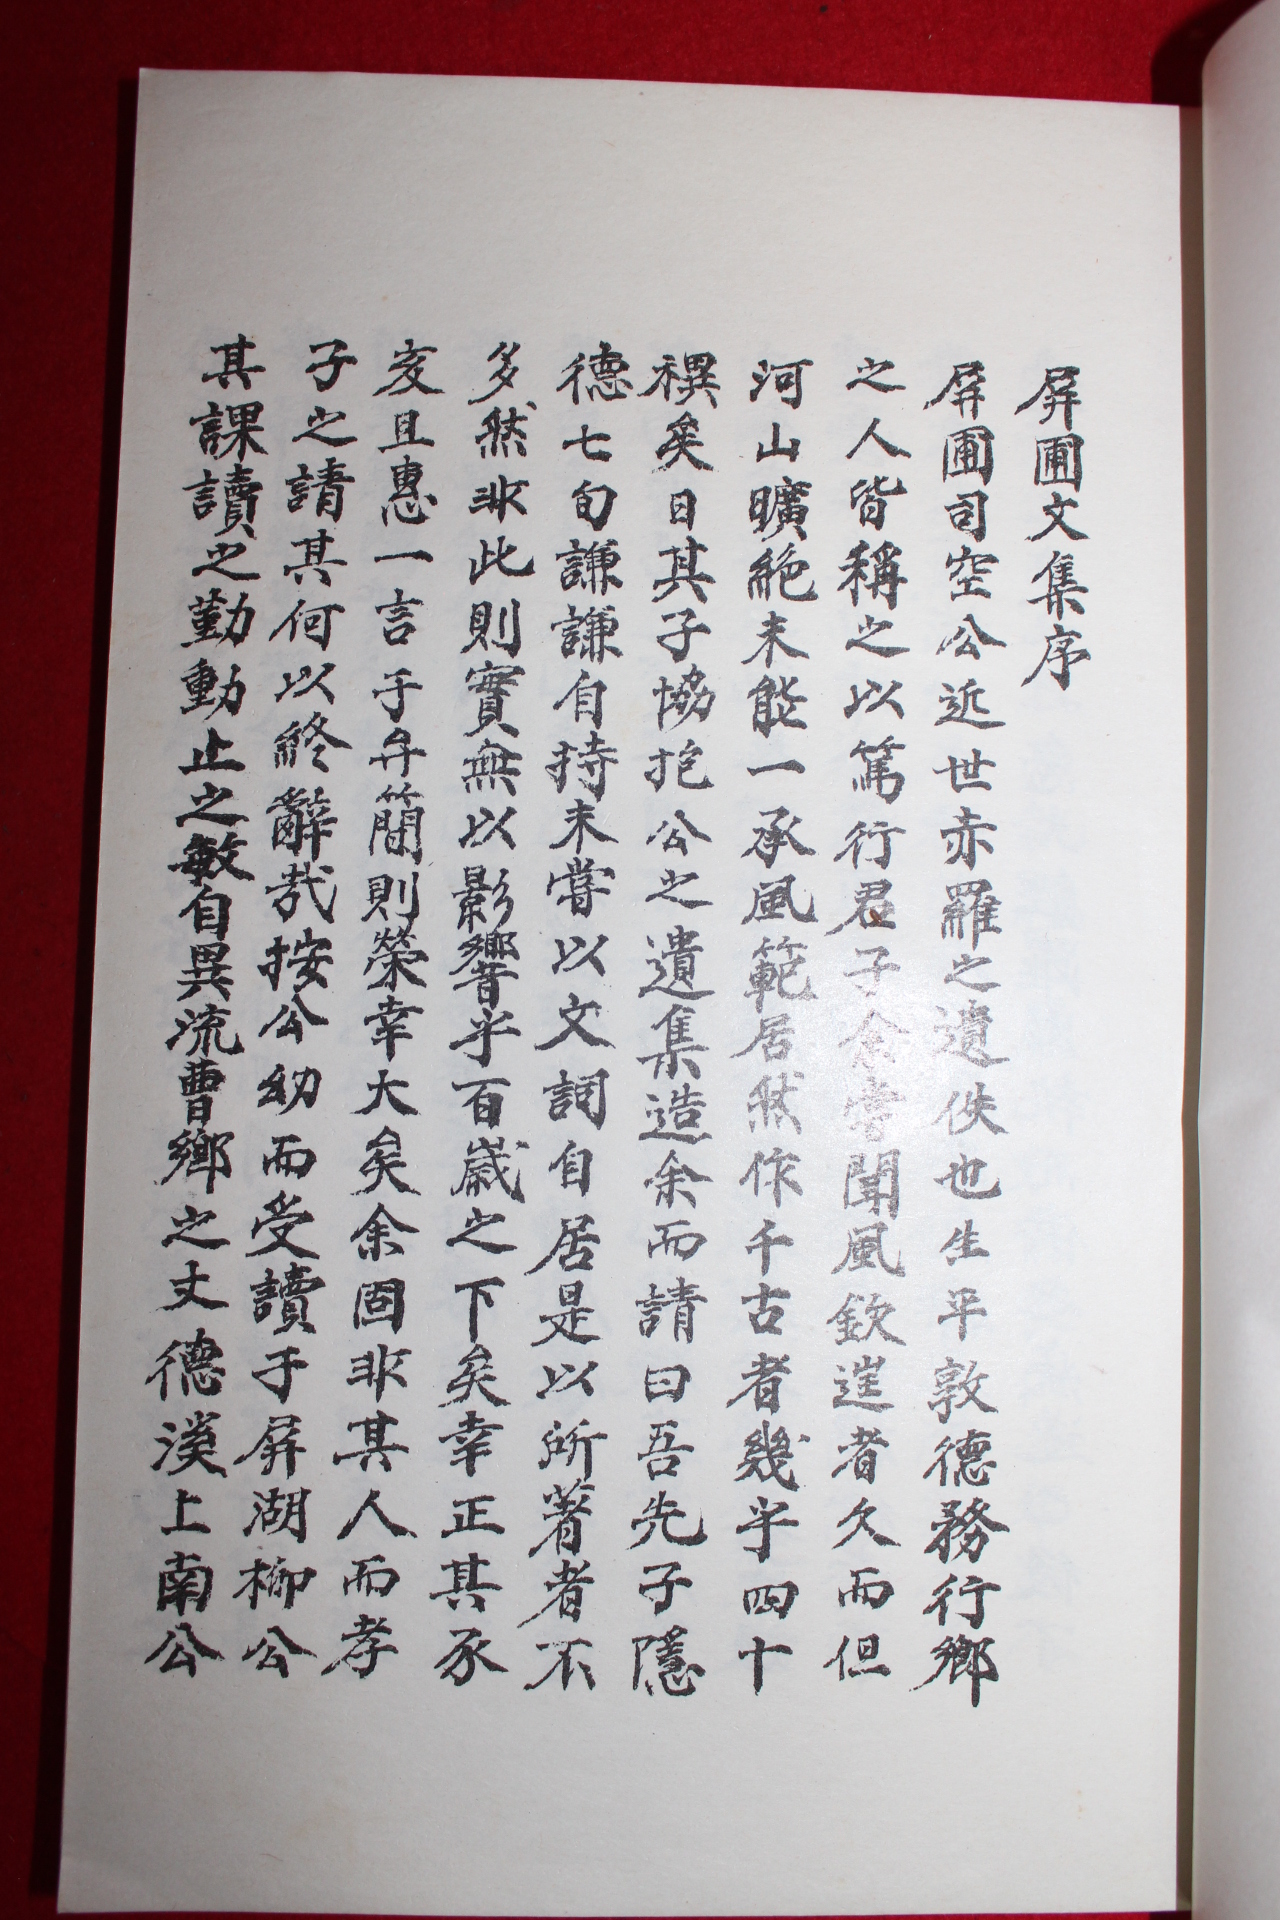 屛圃文集序
屛圃司空公近世赤羅之遺佚也生平敦德務行鄉
之人皆稱之以篤行君子余嘗聞風欽逬者久而但
河山曠絶未能一承風範居然作千古者幾乎四十
禩矣日其子協抱公之遺集造余而請曰吾先子隱
德七旬謙謙自持未嘗以文詞自居是以所著者不
多然非此則實無以影響乎百歲之下矣幸正其承
亥且惠一言于弁簡則榮幸大矣余固非其人而孝
子之請其何以終辭哉按公幼而受讀于屛湖柳公
其課讀之勤動止之敏自異流曹鄉之丈德溪上南公